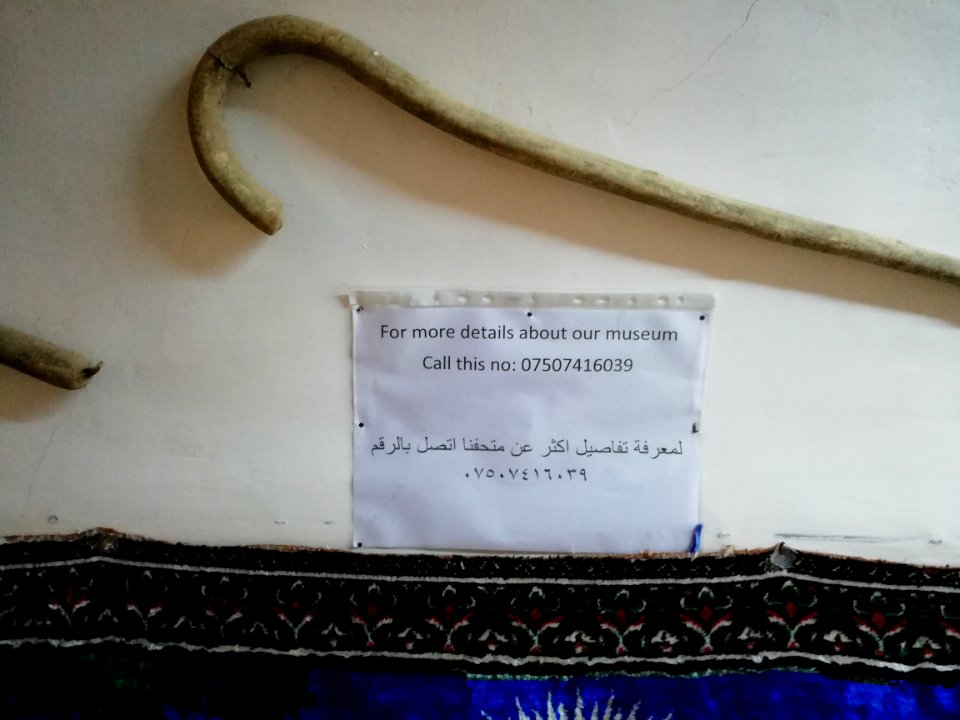 For more details about our museum
Call this no: 07507416039
لمعرفة تفاصيل اكثر عن متحفنا اتصل بالرقم
٠٧٥٠٧٤١٦٠٣٩